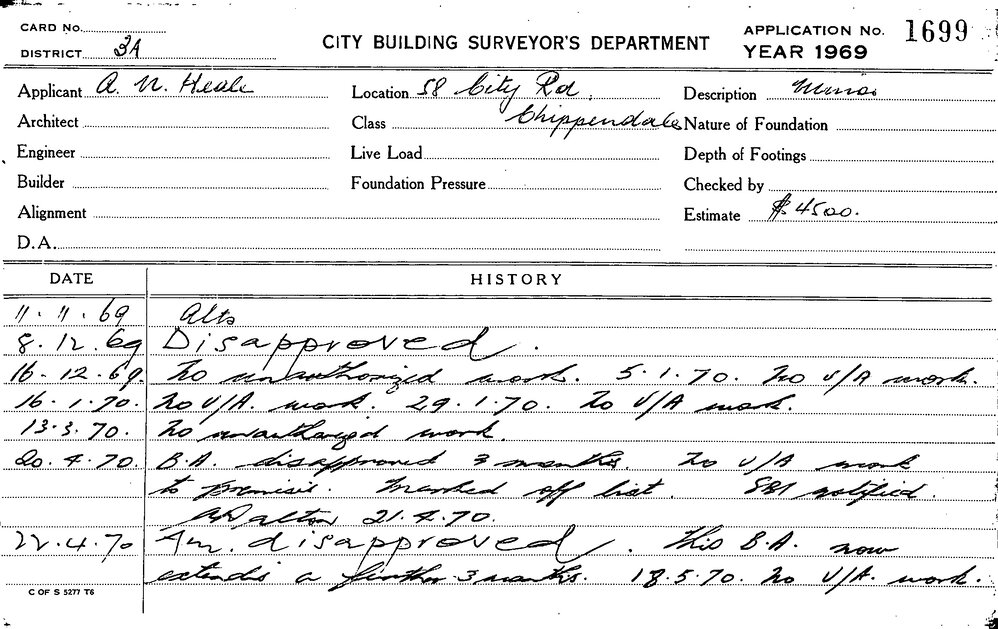 CARD No.
DISTRICT 3A
CITY BUILDING SURVEYOR'S DEPARTMENT
APPLICATION No. 1699
YEAR 1969
Applicant A. N. Heale
Location 58 City Rd, Chippendale
Description Minor
Architect
Class
Nature of Foundation
Engineer
Live Load
Depth of Footings
Builder
Foundation Pressure
Checked by
Alignment
Estimate $4500.
D.A.
DATE HISTORY
11.11.69 Alts
8.12.69 Disapproved.
16.12.69. No unauthorized work. 5.1.70. No U/A work.
16.1.70. No U/A. work. 29.1.70. No U/A work.
13.3.70. No unauthorized work.
20.4.70. B.A. disapproved 3 months. No U/A work
to premises. Marked off list. SBI notified.
21.4.70.
22.4.70 Am. disapproved. This B.A. now
extends a further 3 months. 18.5.70. No U/A. work.
C OF S 5277 T6